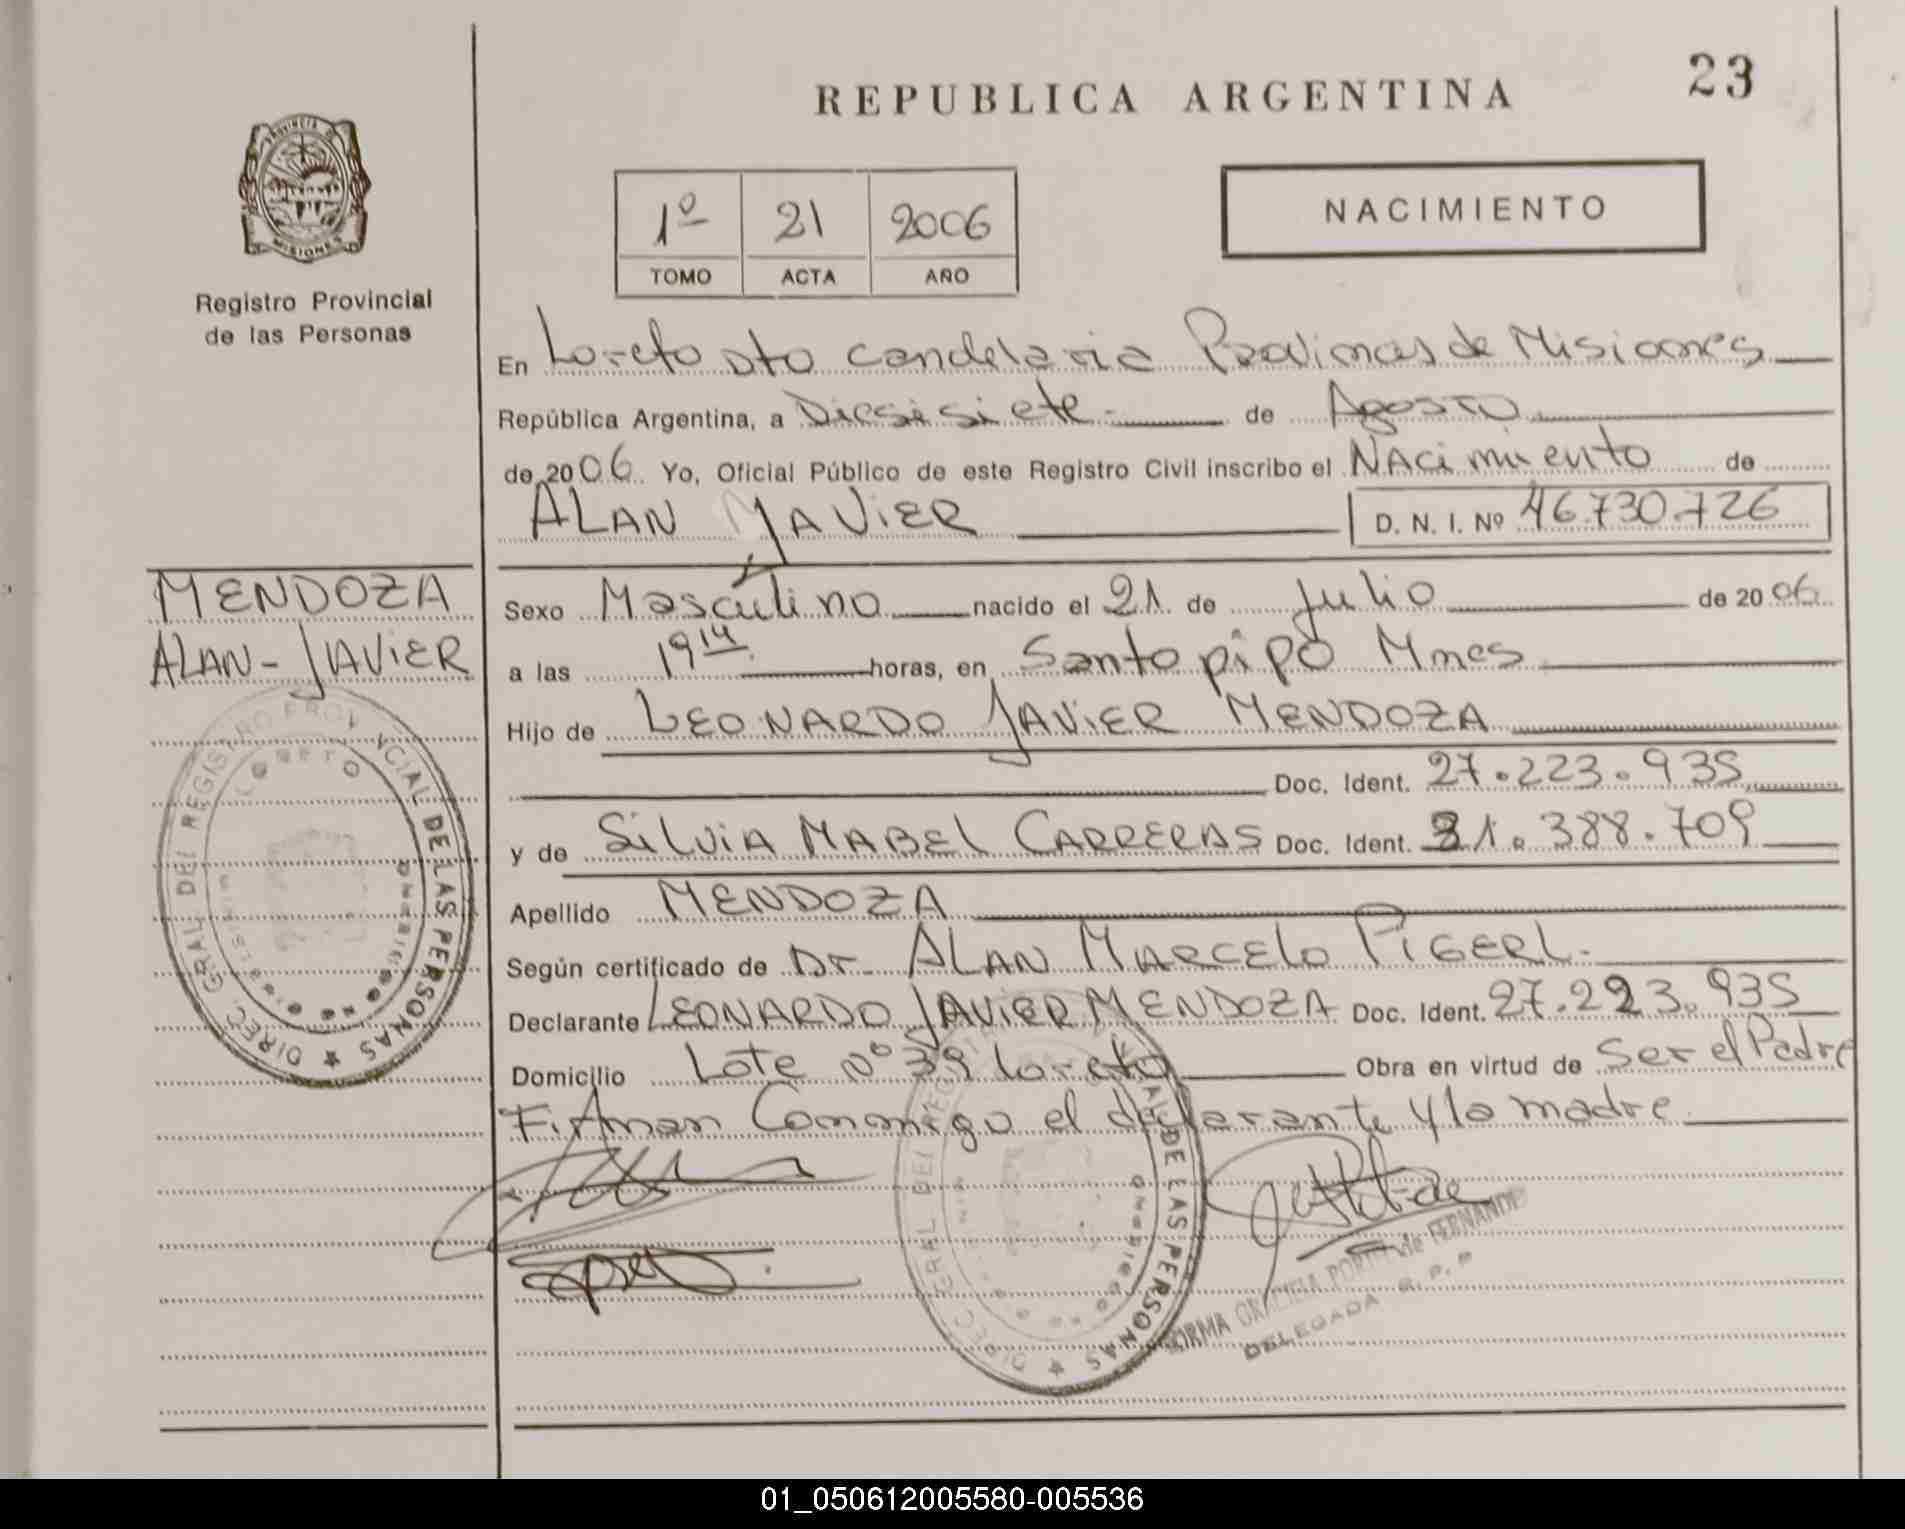 REPUBLICA ARGENTINA
23
PROVINCIA DE
MISIONES
Registro Provincial
de las Personas
1º 21 2006
TOMO ACTA AÑO
NACIMIENTO
En Loreto Dto Candelaria Provincias de Misiones
República Argentina, a Diesisiete de Agosto
de 2006 Yo, Oficial Público de este Registro Civil inscribo el NAcimiento de
ALAN JAVIER D. N. I. Nº 46.730.726
MENDOZA
ALAN-JAVIER
Sexo Masculino nacido el 21 de Julio de 2006
a las 19 14 horas, en Santo pipó Mnes
Hijo de LEONARDO JAVIER MENDOZA
Doc. Ident. 27.223.935
y de SILVIA MABEL CARRERAS Doc. Ident. 31.388.709
Apellido MENDOZA
Según certificado de Dr. ALAN MARCELO PIGERL.
Declarante LEONARDO JAVIER MENDOZA Doc. Ident. 27.223.935
Domicilio Lote Nº 39 Loreto Obra en virtud de Ser el Padre
Firman Conmigo el declarante y la madre
DIREC. GRAL DEL REGISTRO PROVINCIAL DE LAS PERSONAS
LORETO
DIREC. GRAL DEL REGISTRO PROVINCIAL DE LAS PERSONAS
NORMA GRACIELA PORTI de FERNANDE
DELEGADA R. P. P
01_050612005580-005536